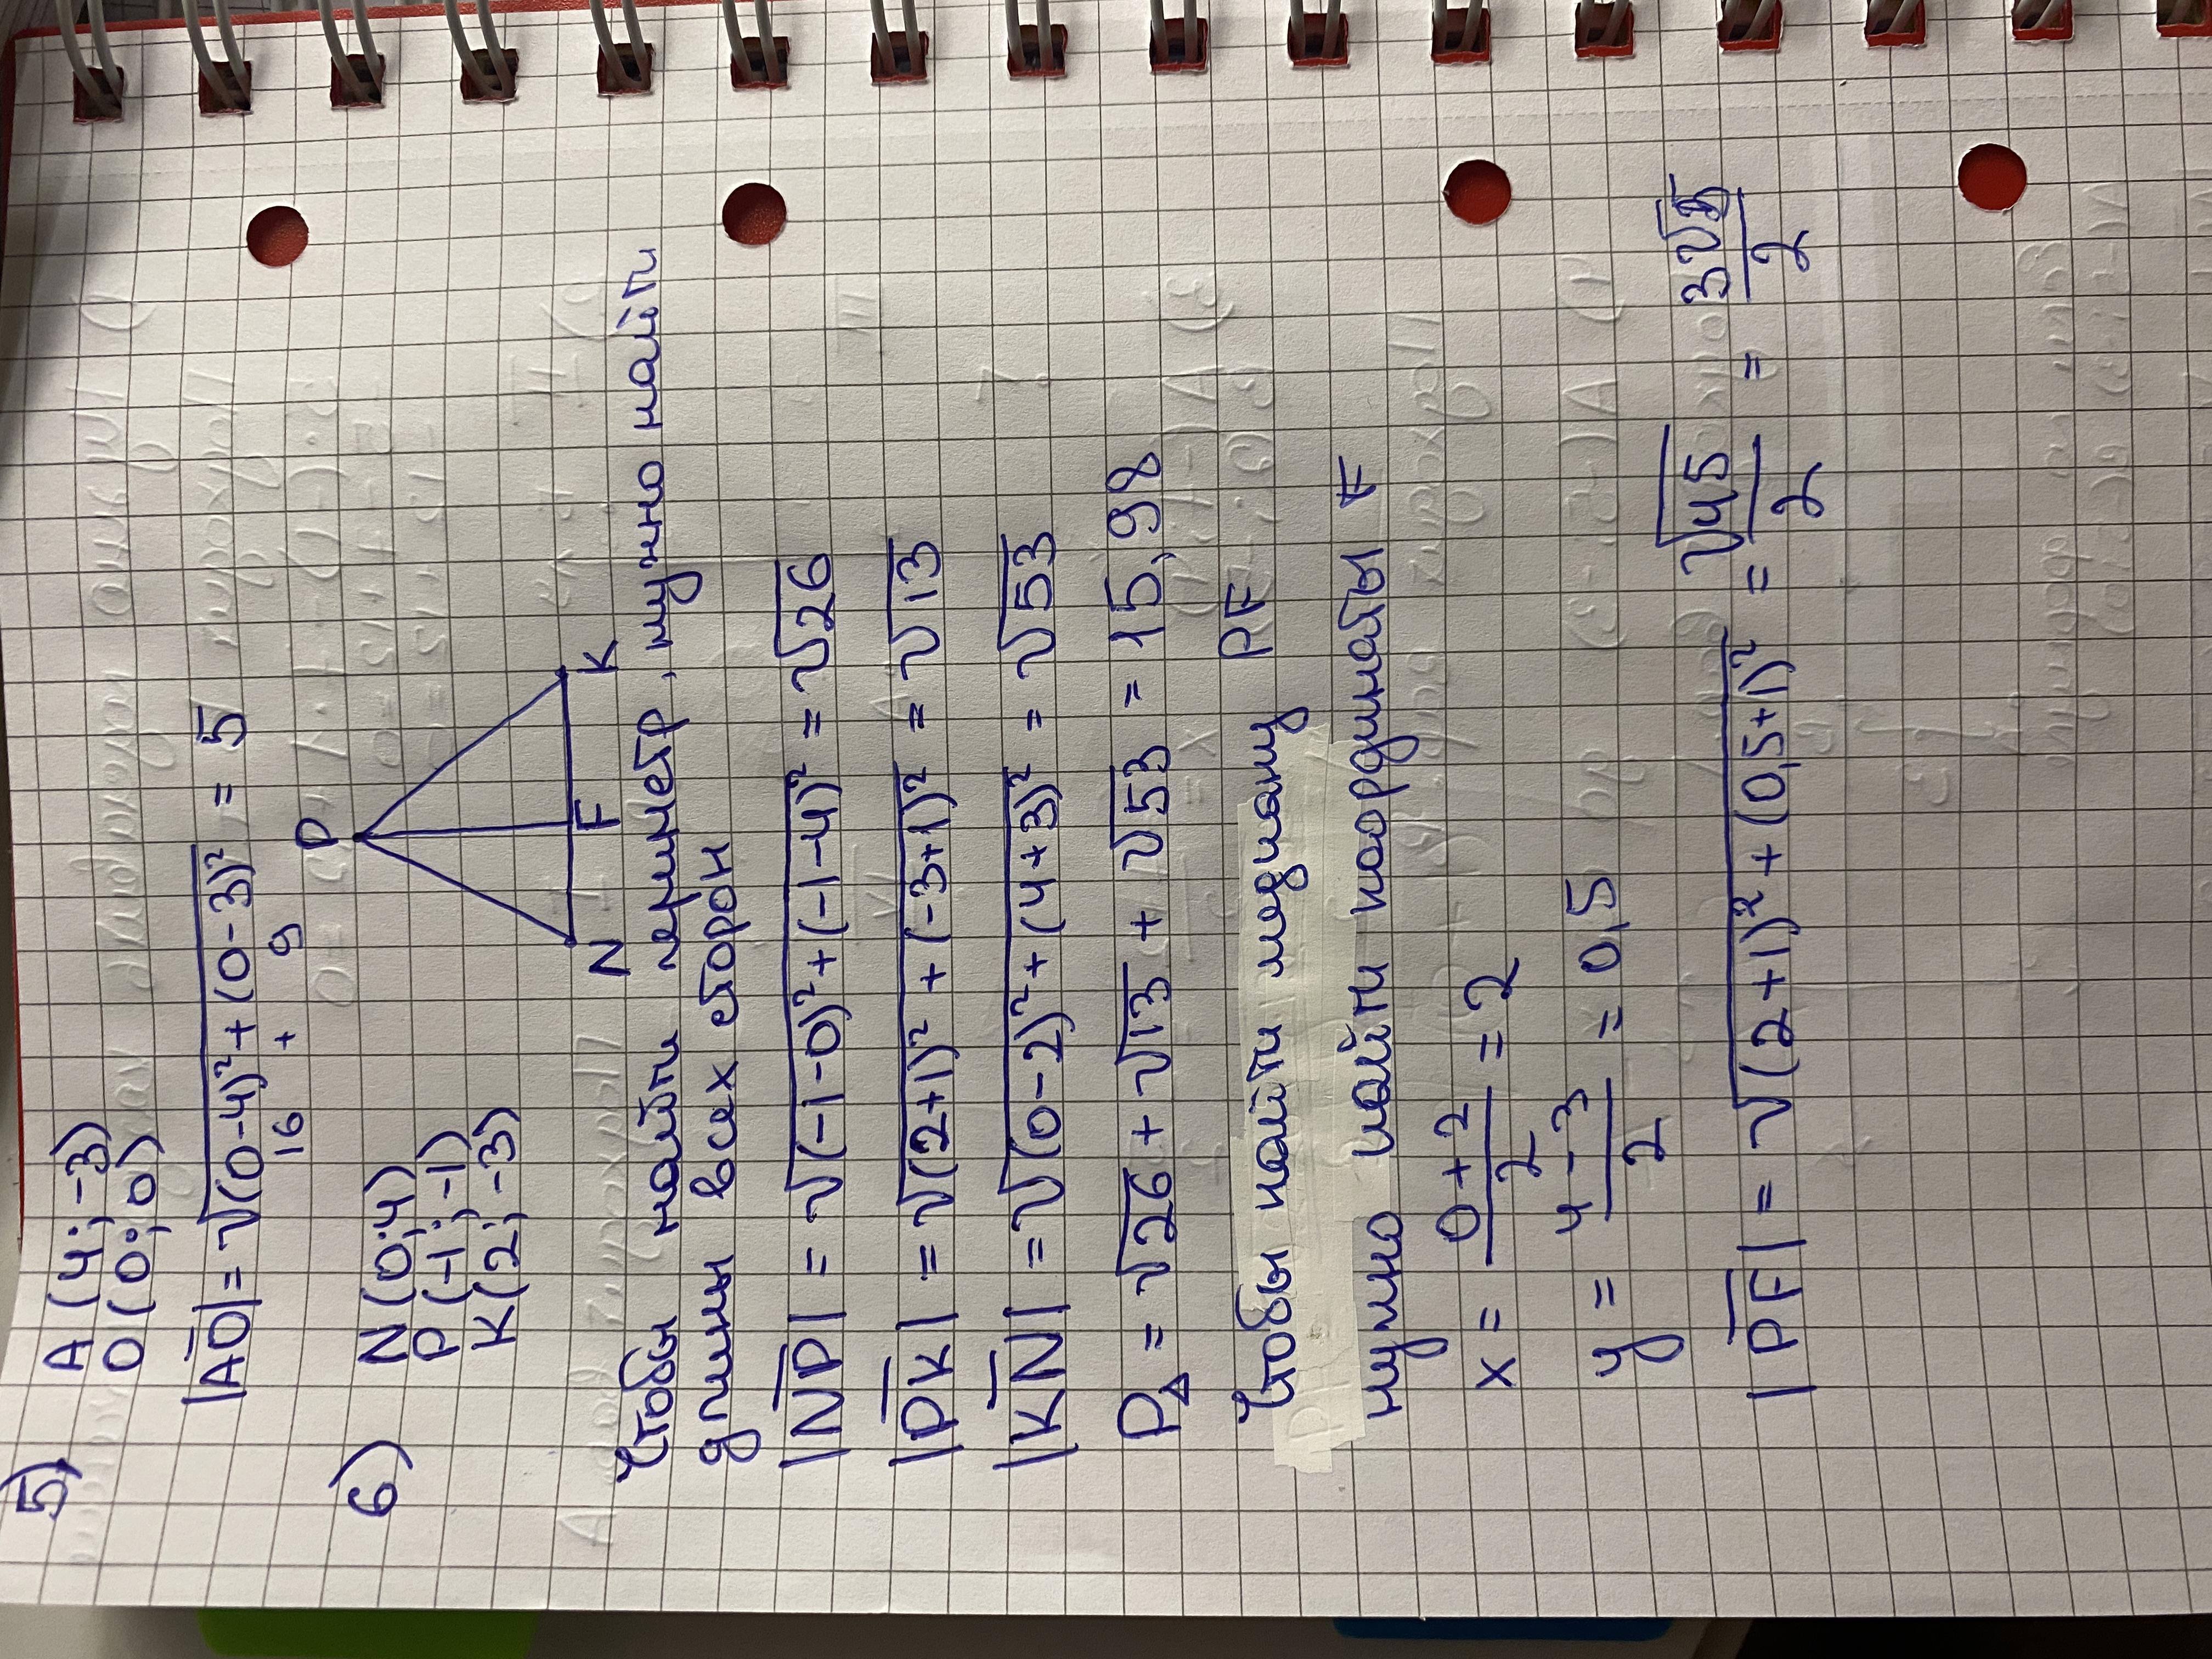 5) A (4; -3)
O (0; 0)
|AO| = √(0-4)² + (0-3)² = 5
16 + 9
6) N (0; 4)
P (-1; -1)
K (2; -3)
P
N F K
Чтобы найти периметр, нужно найти
длины всех сторон
|NP| = √(-1-0)² + (-1-4)² = √26
|PK| = √(2+1)² + (-3+1)² = √13
|KN| = √(0-2)² + (4+3)² = √53
P△ = √26 + √13 + √53 = 15,98
Чтобы найти медиану PF
нужно найти координаты F
x = 0+2/2 = 2
y = 4-3/2 = 0,5
|PF| = √(2+1)² + (0,5+1)² = √45/2 = 3√5/2